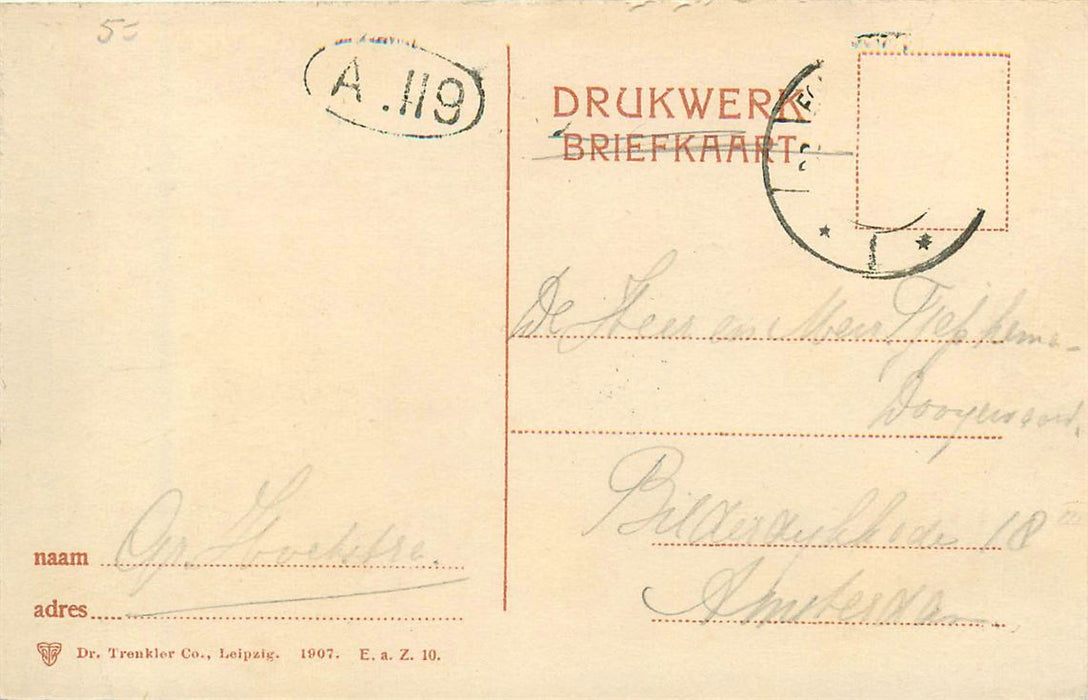 5=
A.119
DRUKWERK
BRIEFKAART
De Heer en Mevr Tjebkema-
Dooyewaard.
Bilderdijkkade 18 III
Amsterdam.
naam Gr. Hoekstra.
adres
Dr. Trenkler Co., Leipzig. 1907. E. a. Z. 10.